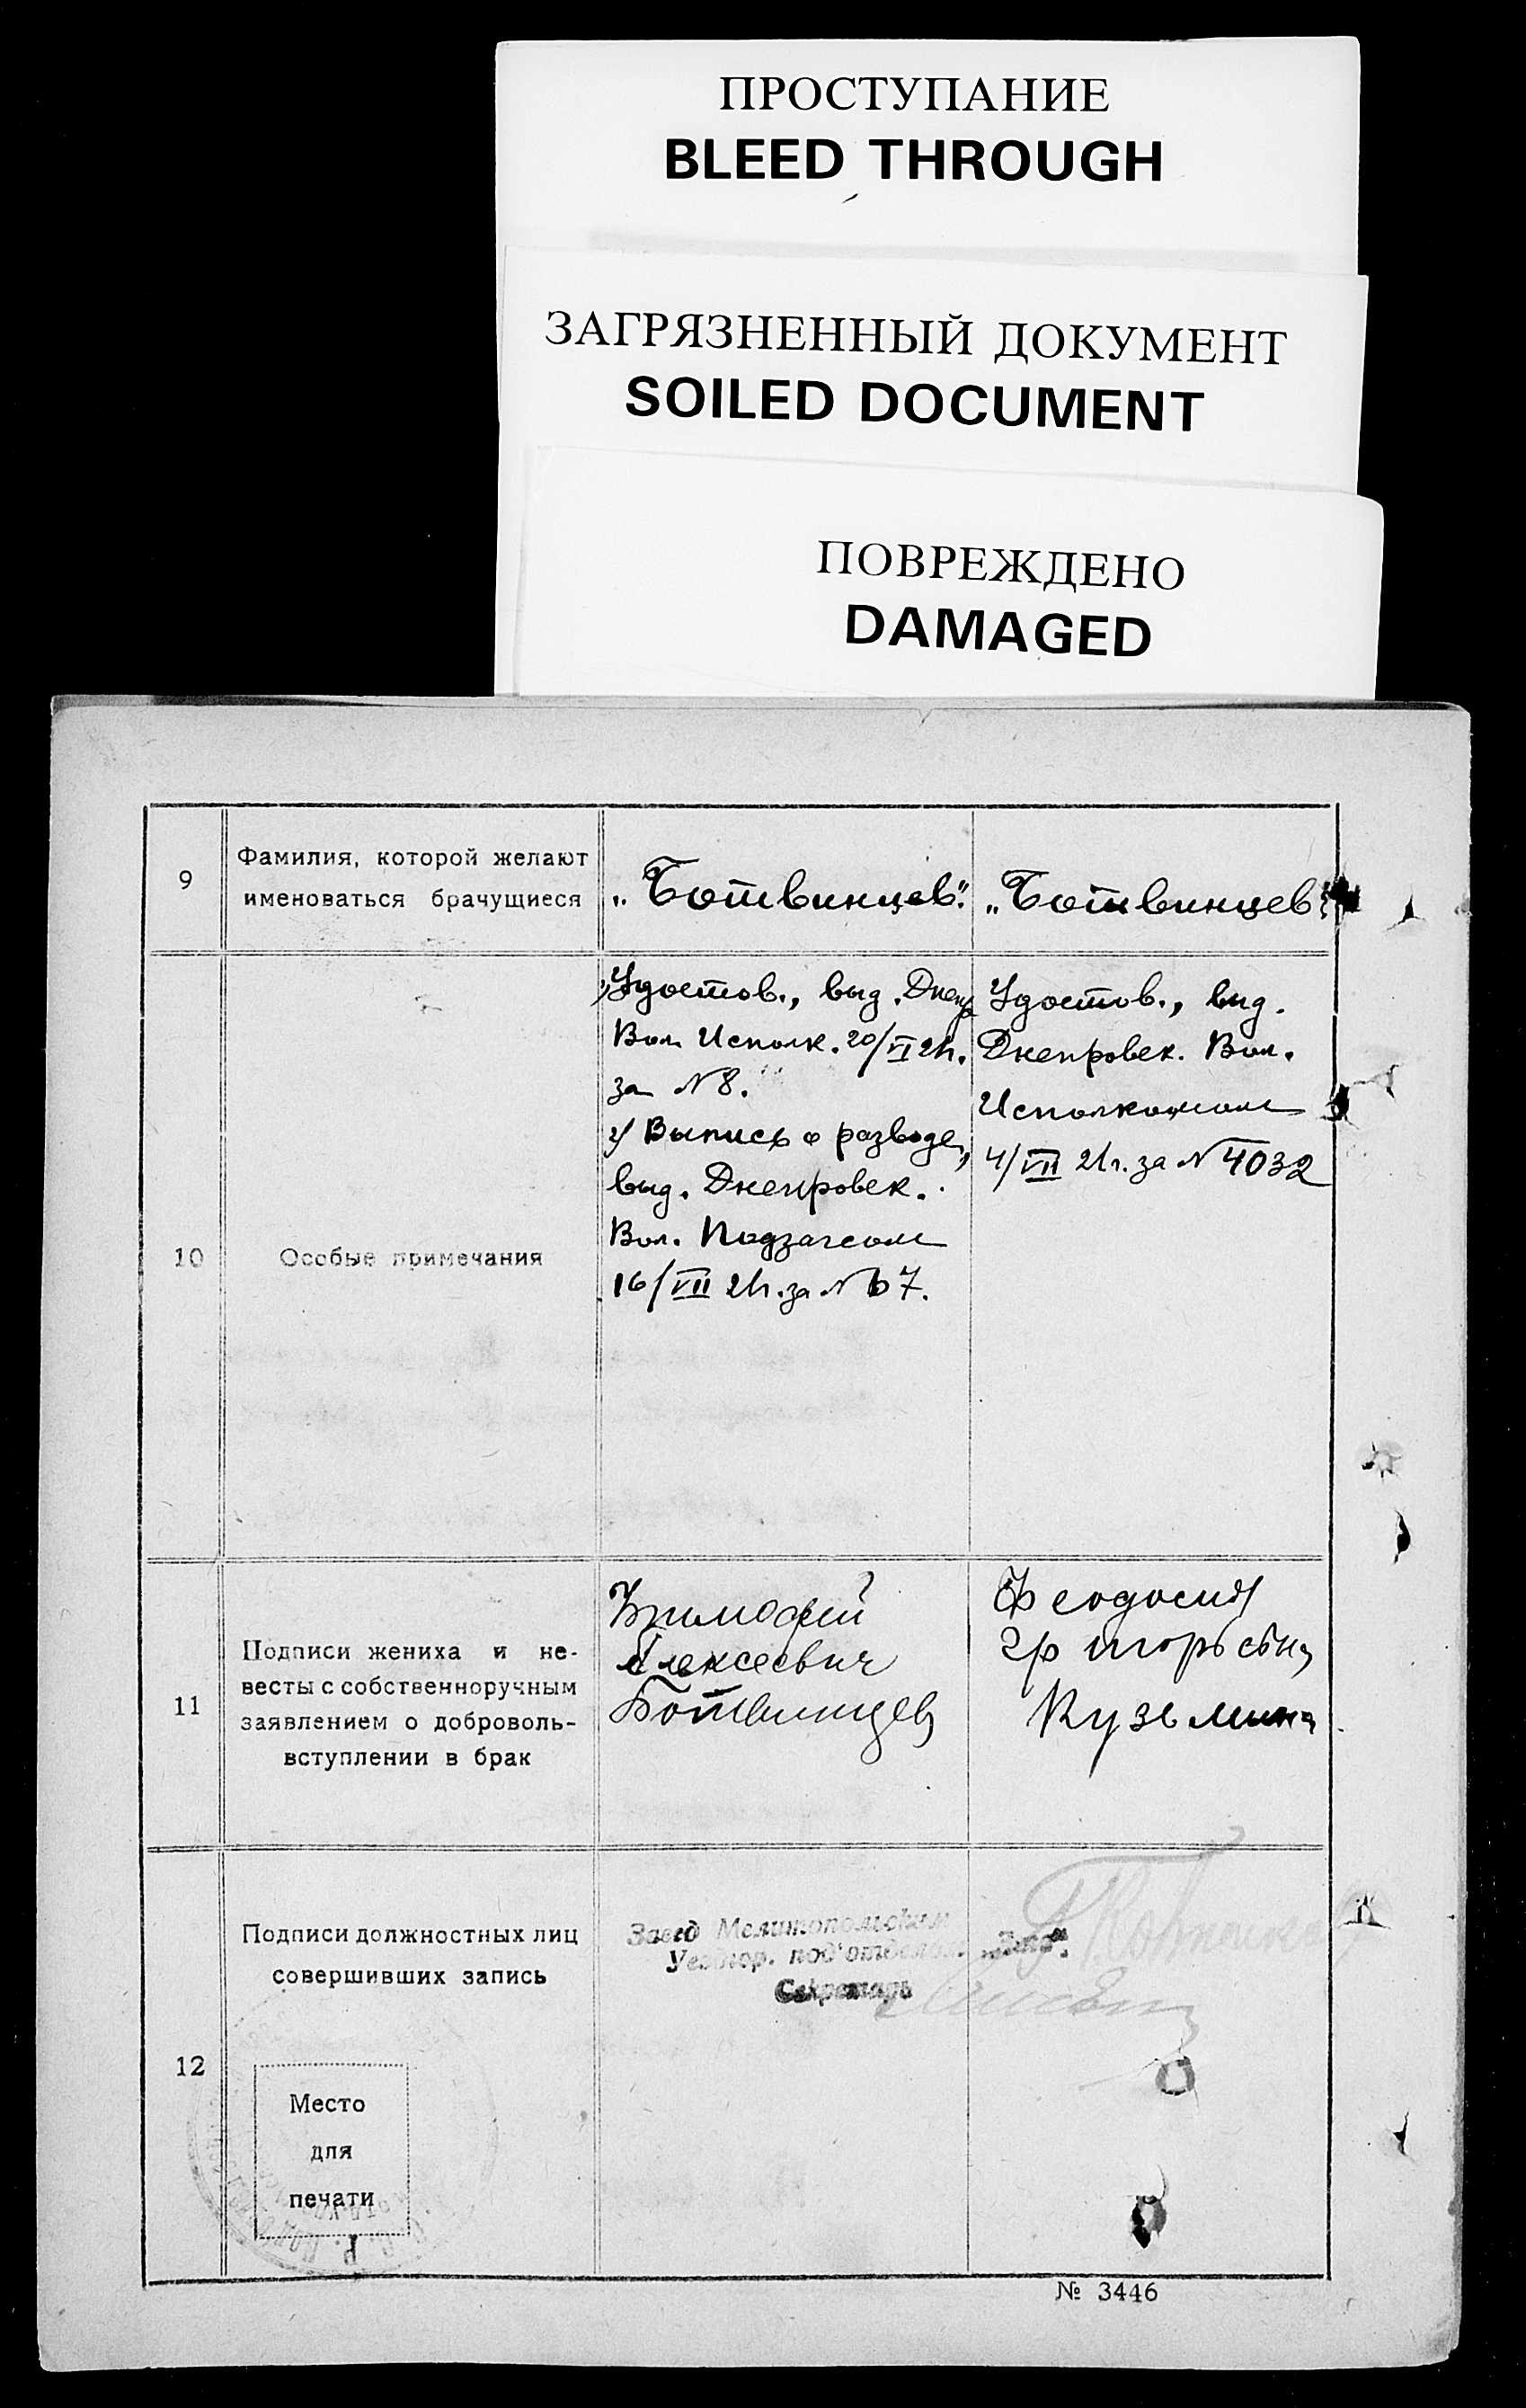 ПРОСТУПАНИЕ
BLEED THROUGH
ЗАГРЯЗНЕННЫЙ ДОКУМЕНТ
SOILED DOCUMENT
ПОВРЕЖДЕНО
DAMAGED
9
Фамилия, которой желают
именоваться брачущиеся
„Ботвинцев".
„Ботвинцев"
10
Особые примечания
Удостов., выд. Днепр
Вол. Исполк. 20/VI 21г.
за N 8.
2/ Выпись о разводе,
выд. Днепровск.
Вол. Подзагсом
16/VII 21г. за N 67.
Удостов., выд.
Днепровск. Вол.
Исполкомом
4/VII 21г. за N 4032
11
Подписи жениха и не-
весты с собственноручным
заявлением о доброволь-
вступлении в брак
Тимофей
Алексеевич
Ботвинцев
Феодосия
Григорьевна
Кузьмина
12
Подписи должностных лиц
совершивших запись
Завед Мелитопольским
Уезднор. под'отделом „Загс".
Секретарь
Место
для
печати
№ 3446